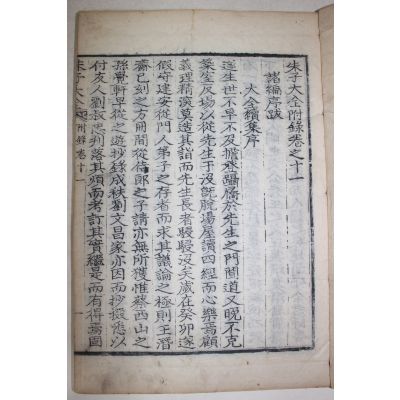 朱子大全附錄卷之十一
諸編序跋
大全續集序
遂生世不早不及擔簦躡屩於先生之門聞道又晚不克
築室反場以從先生于沒旣脫場屋讀四經而心樂焉顧
義理精深莫造其詣而先生長者駸駸沒矣歲在癸卯遂
假守建安從門人弟子之存者而求其議論之極則王潛
齋已刻之方冊間從侍郞之子請亦無所獲惟蔡西山之
孫覺軒早從之遊抄錄成秩劉文昌家亦因而抄掇悉以
付友人劉叔忠刊落其煩而考訂其實繼是而有得焉固
朱子大全附錄卷十一
一